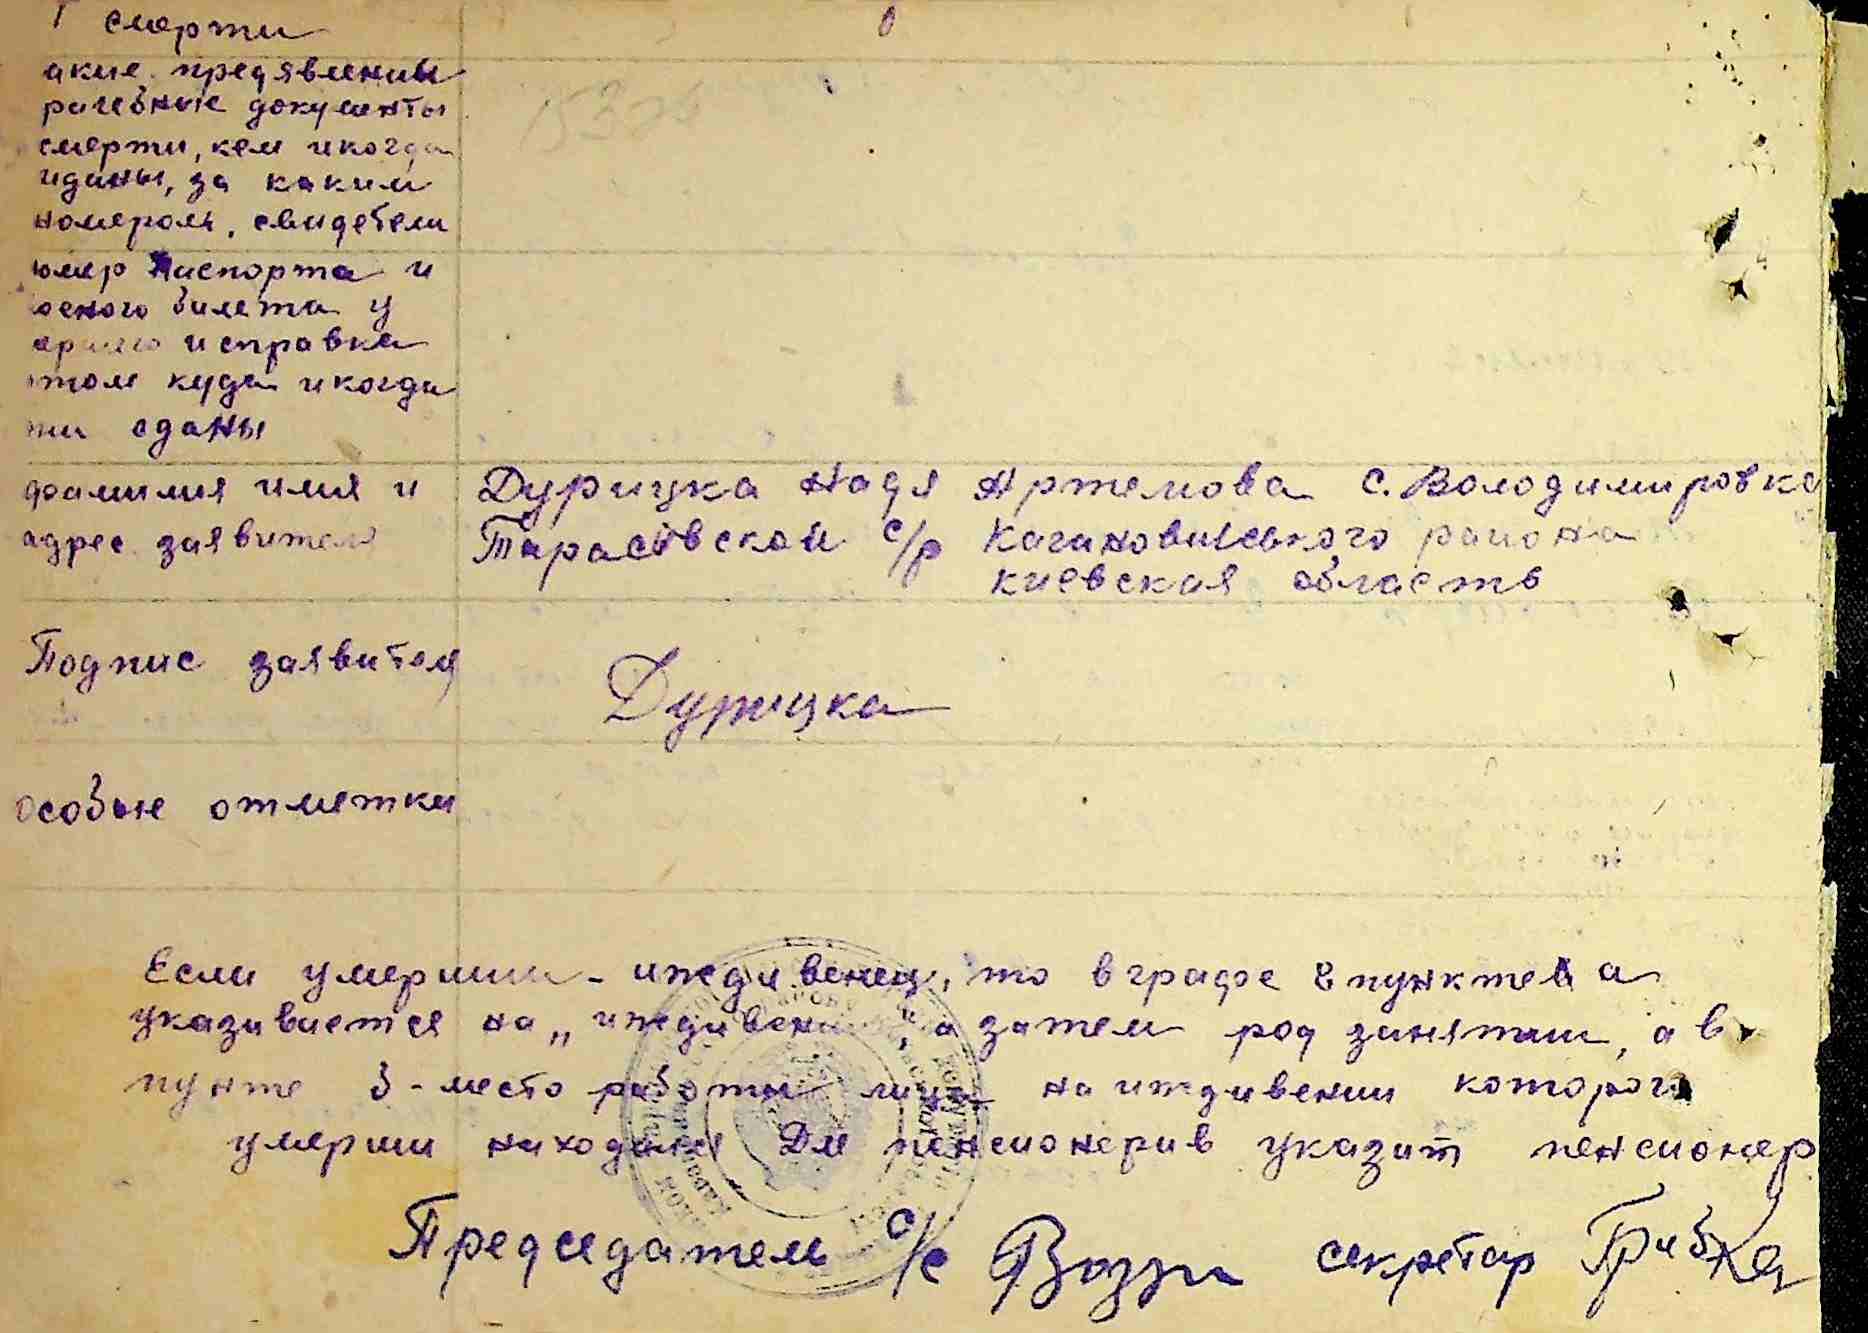 смерти
акие предявлены
рачебные документы
смерти, кем и когда
иданы, за каким
номером, свидетели
омер паспорта и
оеного билета у
мершего и справка
этом куда и когда
ти сданы
фамилия имя и Дурицка Надя Артемова с. Володимировка
адрес заявителя Тарасовской с/р Кагановиського района
киевская область
Подпис заявителя
Дурицка
особые отметки
Если умерший - иждивенец, то в графе 8 пункте а
указивается на „ иждивении, а затем род занятии, а в
пункте в - место работы лица на иждивении которого
умерши находился Для пенсионерив указит пенсионер
Председатель с/с секретар Грибка